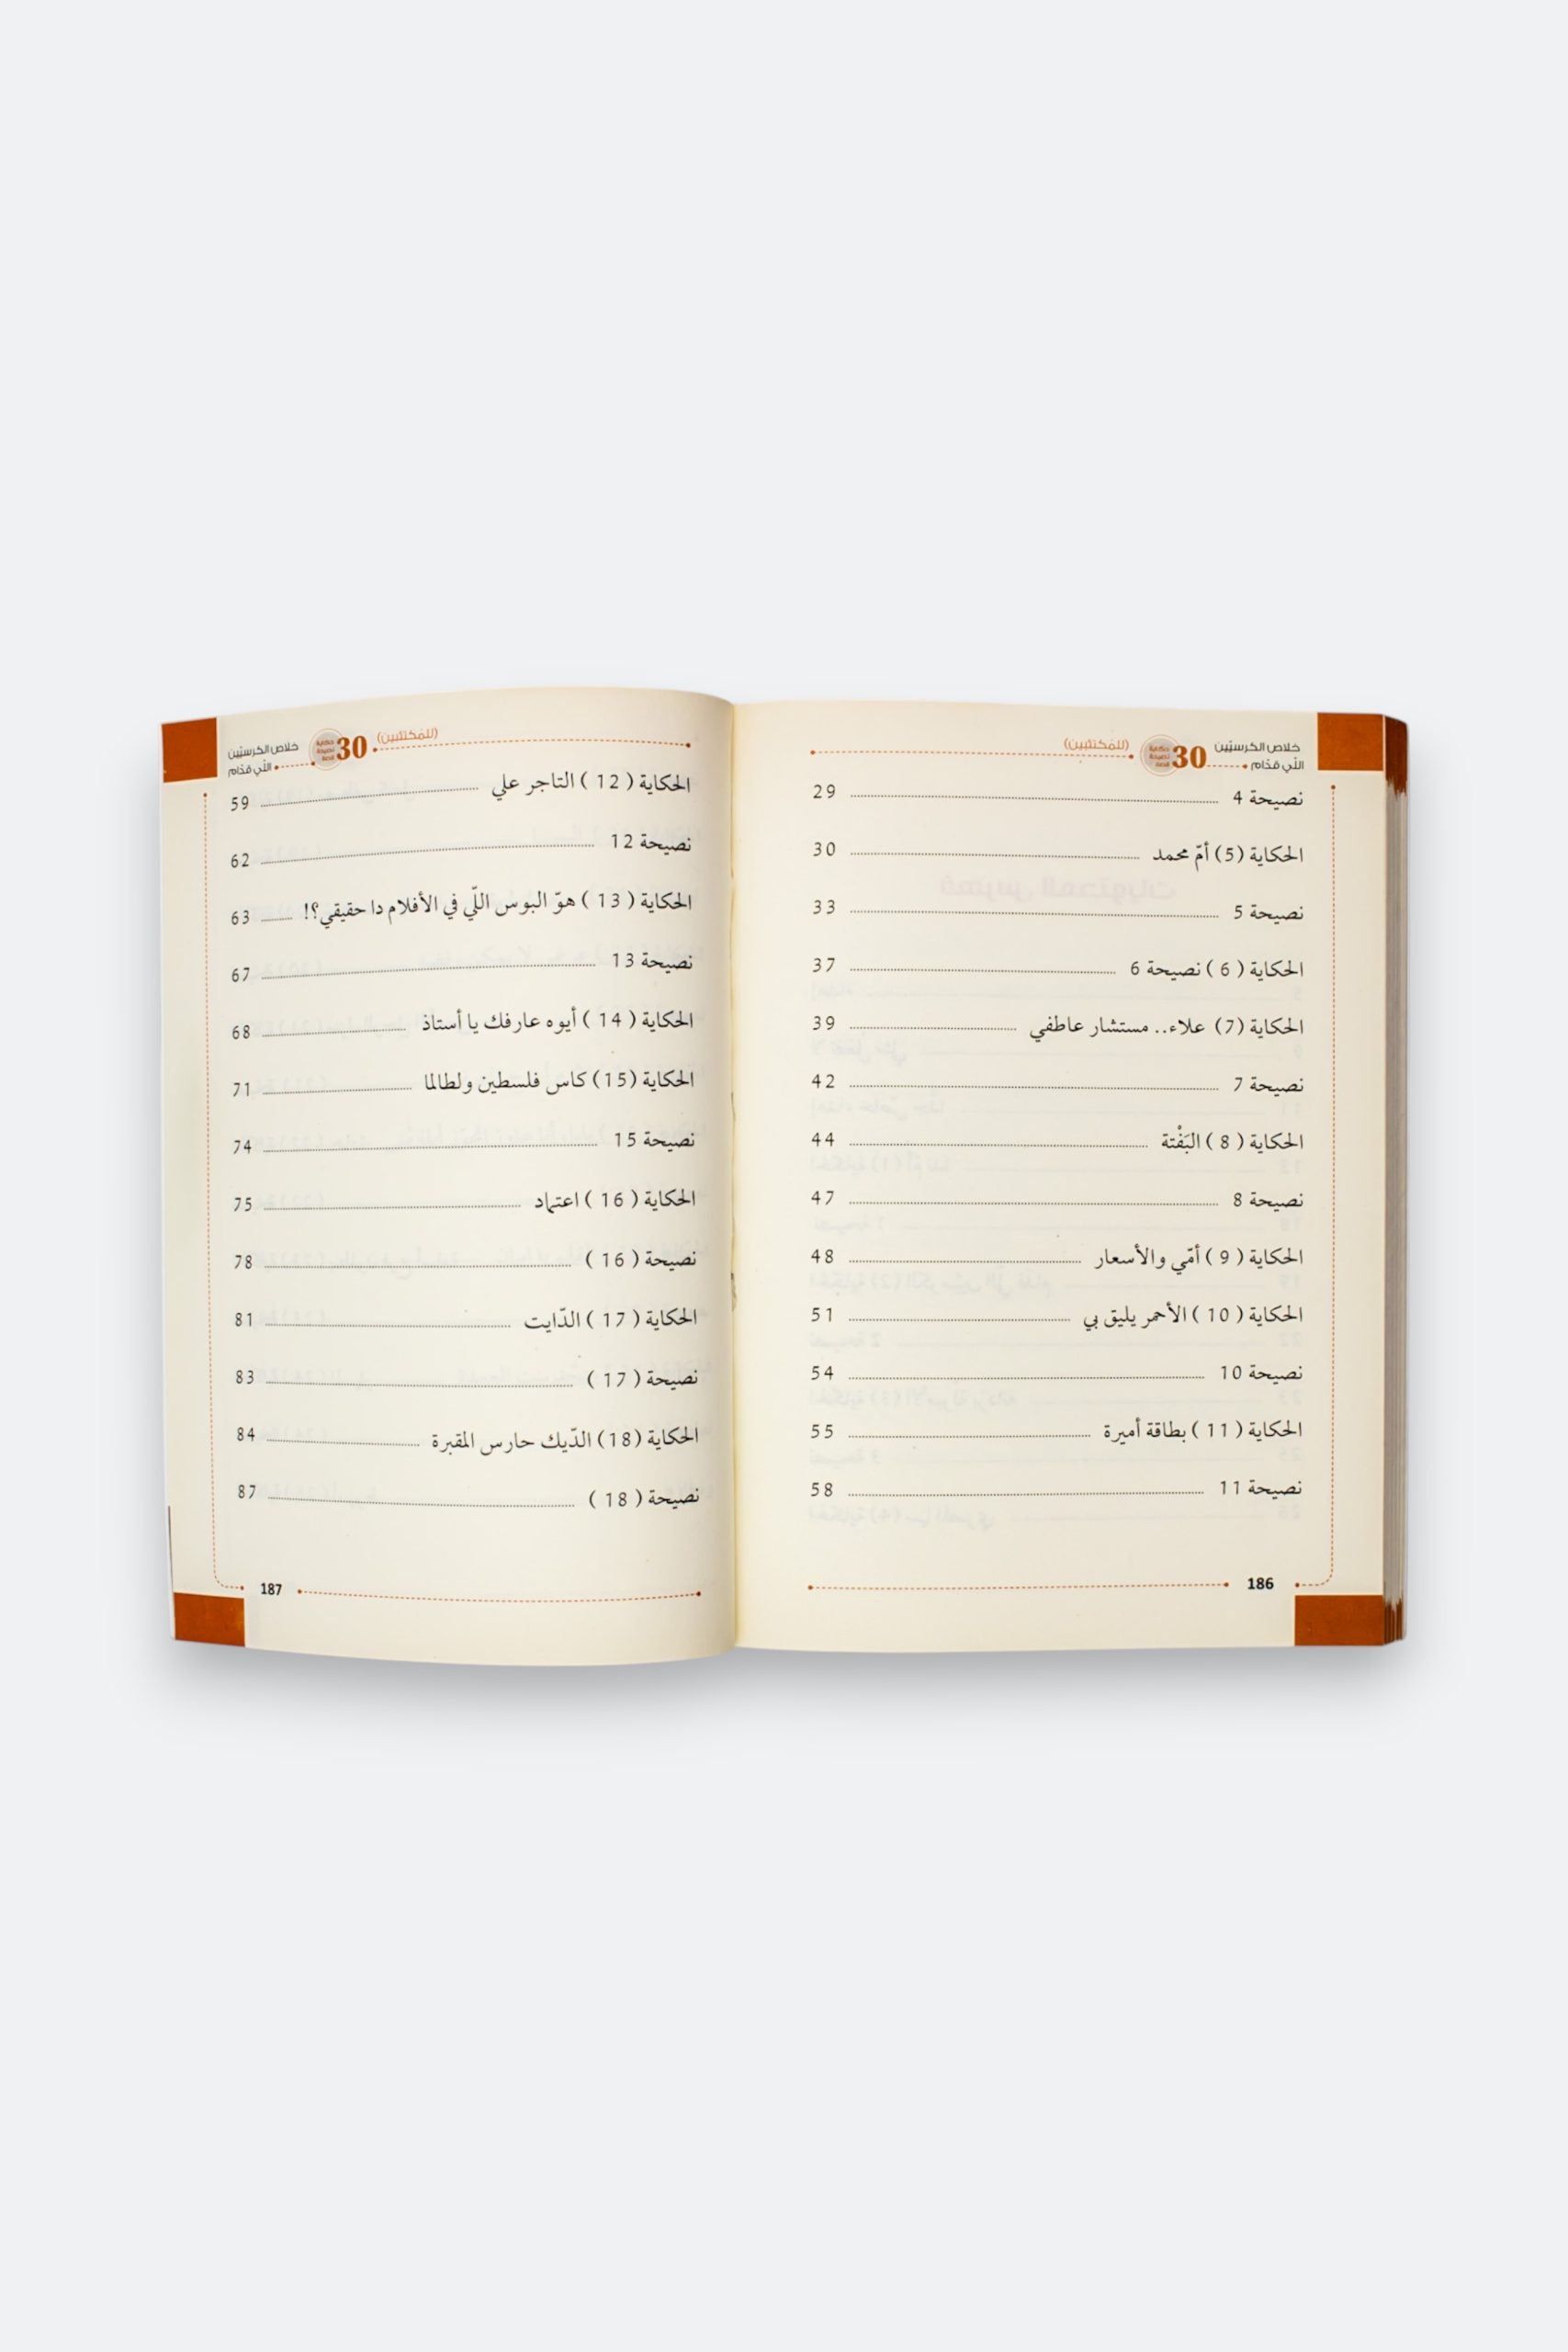 خلاص الكرسيّين
اللّي قدّام
30
حكاية
نصيحة
قصة
(للمُكتئبين)
نصيحة 4 29
الحكاية (5) أمّ محمد 30
نصيحة 5 33
الحكاية ( 6 ) نصيحة 6 37
الحكاية (7) علاء.. مستشار عاطفي 39
نصيحة 7 42
الحكاية ( 8 ) البَفْتة 44
نصيحة 8 47
الحكاية ( 9 ) أمّي والأسعار 48
الحكاية ( 10 ) الأحمر يليق بي 51
نصيحة 10 54
الحكاية ( 11 ) بطاقة أميرة 55
نصيحة 11 58
186
خلاص الكرسيّين
اللّي قدّام
30
حكاية
نصيحة
قصة
(للمُكتئبين)
الحكاية ( 12 ) التاجر علي 59
نصيحة 12 62
الحكاية ( 13 ) هوّ البوس اللّي في الأفلام دا حقيقي؟! 63
نصيحة 13 67
الحكاية ( 14 ) أيوه عارفك يا أستاذ 68
الحكاية (15) كاس فلسطين ولطالما 71
نصيحة 15 74
الحكاية ( 16 ) اعتماد 75
نصيحة ( 16 ) 78
الحكاية ( 17 ) الدّايت 81
نصيحة ( 17 ) 83
الحكاية (18) الدّيك حارس المقبرة 84
نصيحة ( 18 ) 87
187